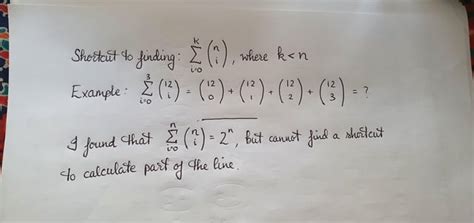 Shortcut to finding: $\sum_{i=0}^{k} \binom{n}{i}$, where k<n
Example: $\sum_{i=0}^{3} \binom{12}{i} = \binom{12}{0} + \binom{12}{1} + \binom{12}{2} + \binom{12}{3} = ?$
I found that $\sum_{i=0}^{n} \binom{n}{i} = 2^n$, but cannot find a shortcut
to calculate part of the line.